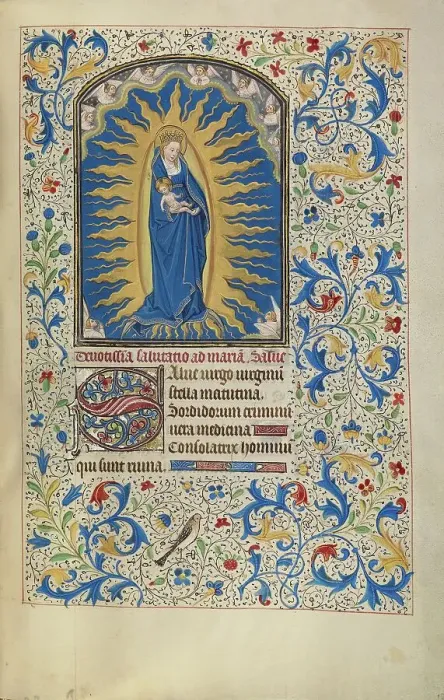 Deuotissia salutatio ad mariā. Salue
Salue uirgo uirginū
stella matutina.
Sordidorum criminū
uera medicina
Consolatrix hominū
qui sunt ruina.